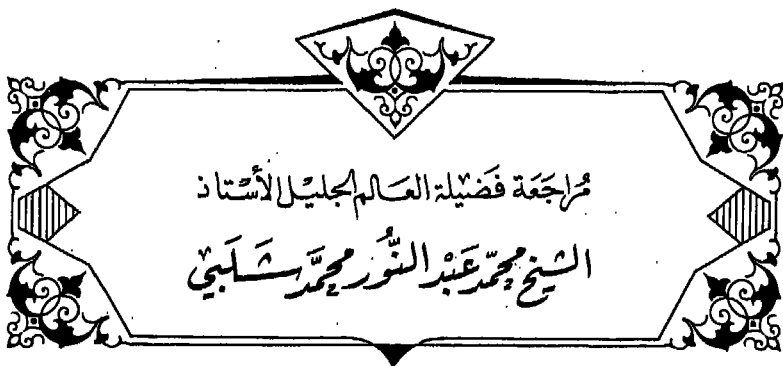 مُرَاجَعَة فَضِيلَة العَالم الجَلِيْل الأُسْتَاذ
الشيخ محمّد عَبْد النُّور محمَّد شَلَبيّ